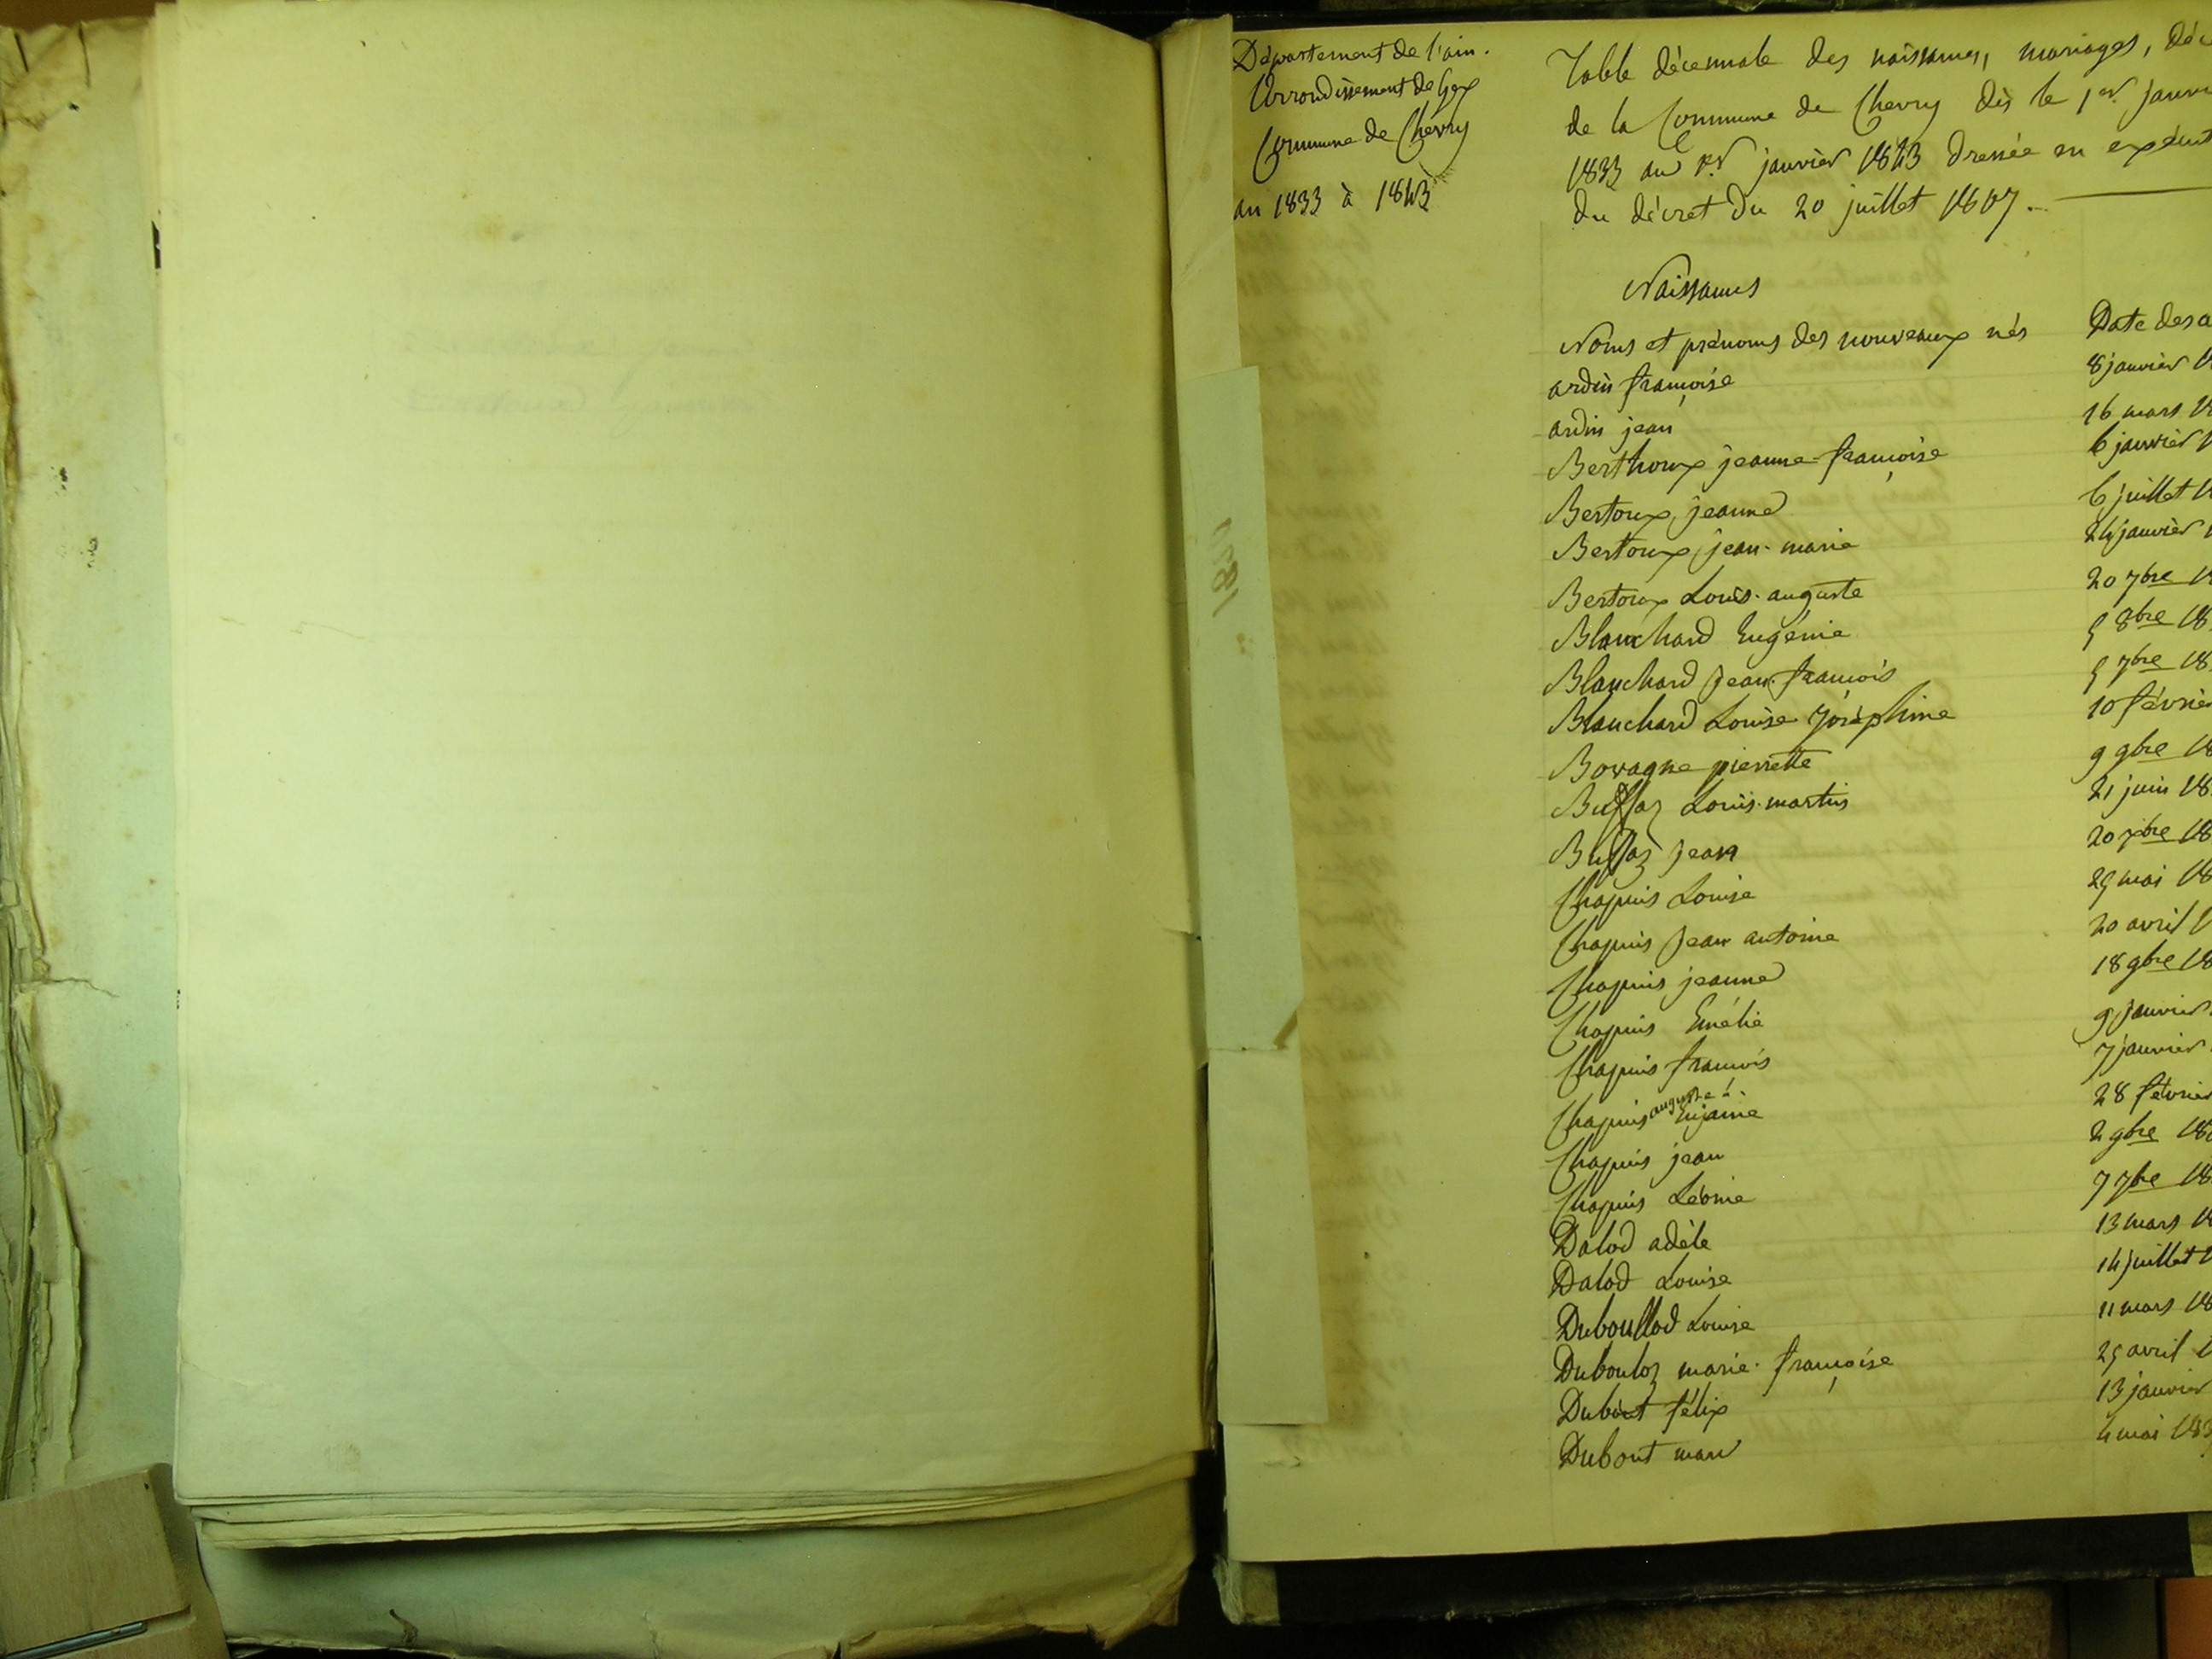 Département de l'ain.
Arrondissement de Gex
Commune de Chevry
an 1833 à 1843
Table décennale des naissances, mariages, déc
de la Commune de Chevry dès le 1er janvi
1833 au 1er janvier 1843 dressée en exécut
du décret du 20 juillet 1807.
Naissances
Noms et prénoms des nouveaux nés Date des a
ardin françoise 8 janvier 1
ardin jean 16 mars 18
Berthoux jeanne-françoise 6 janvier 1
Bertoux jeanne 6 juillet 18
Bertoux jean-marie 24 janvier 1
Bertoux Louis-auguste 20 7bre 18
Blanchard Eugénie 5 8bre 18
Blanchard jean-françois 5 7bre 18
Blanchard Louise Joséphine 10 févrie
Bovagne pierrette 9 9bre 18
Buffaz Louis-martin 21 juin 18
Buffaz Jean 20 xbre 18
Chapuis Louise 29 mai 18
Chapuis Jean antoine 20 avril 1
Chapuis jeanne 18 9bre 18
Chapuis Emélie 9 janvier
Chapuis françois 7 janvier
Chapuis auguste Eujanie 28 février
Chapuis jean 2 9bre 18
Chapuis Léonie 7 7bre 18
Dalod adèle 13 mars 18
Dalod Louise 14 juillet 1
Duboullod Louise 11 mars 18
Dubouloz marie-françoise 25 avril 1
Dubout félix 13 janvier
Dubout marie 4 mai 183
1881